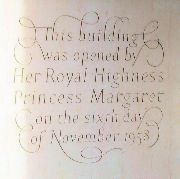 This building
was opened by
Her Royal Highness
Princess Margaret
on the sixth day
of November 1958